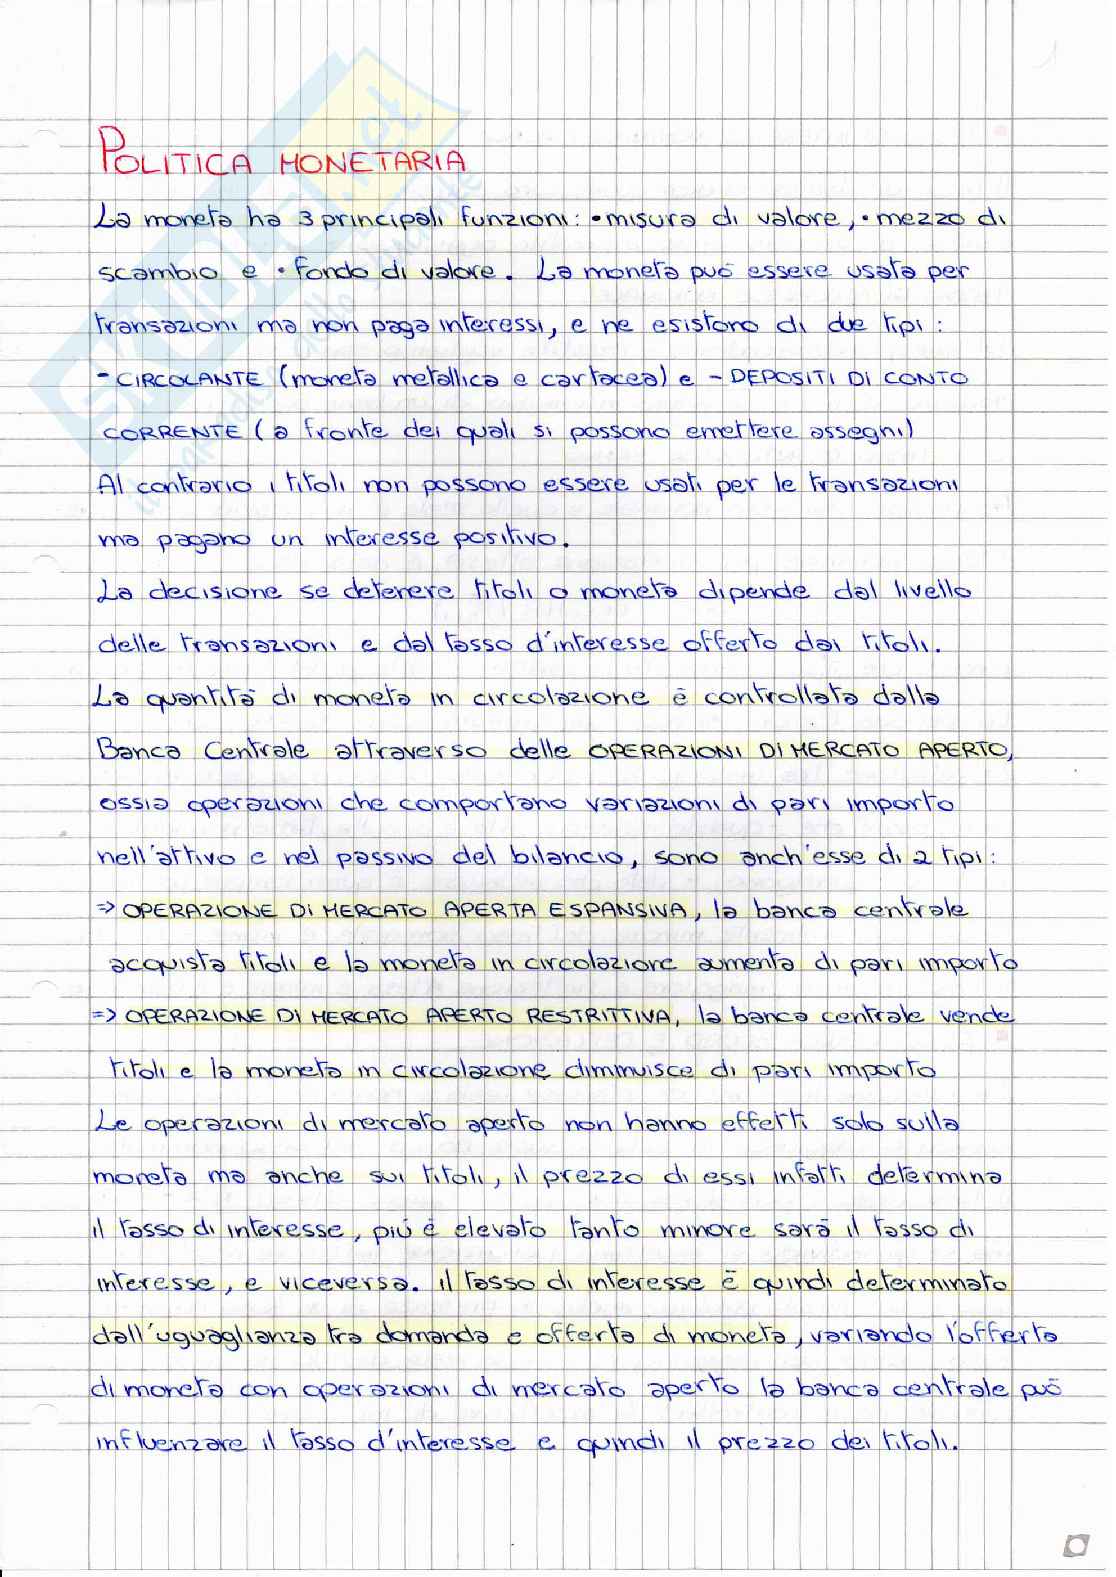 POLITICA MONETARIA
La moneta ha 3 principali funzioni: • misura di valore, • mezzo di
scambio e • fondo di valore. La moneta può essere usata per
transazioni ma non paga interessi, e ne esistono di due tipi:
- CIRCOLANTE (moneta metallica e cartacea) e - DEPOSITI DI CONTO
CORRENTE (a fronte dei quali si possono emettere assegni)
Al contrario i titoli non possono essere usati per le transazioni
ma pagano un interesse positivo.
La decisione se detenere titoli o moneta dipende dal livello
delle transazioni e dal tasso d'interesse offerto dai titoli.
La quantità di moneta in circolazione è controllata dalla
Banca Centrale attraverso delle OPERAZIONI DI MERCATO APERTO,
ossia operazioni che comportano variazioni di pari importo
nell'attivo e nel passivo del bilancio, sono anch'esse di 2 tipi:
=> OPERAZIONE DI MERCATO APERTA ESPANSIVA, la banca centrale
acquista titoli e la moneta in circolazione aumenta di pari importo
=> OPERAZIONE DI MERCATO APERTO RESTRITTIVA, la banca centrale vende
titoli e la moneta in circolazione diminuisce di pari importo
Le operazioni di mercato aperto non hanno effetti solo sulla
moneta ma anche sui titoli, il prezzo di essi infatti determina
il tasso di interesse, più è elevato tanto minore sarà il tasso di
interesse, e viceversa. il tasso di interesse è quindi determinato
dall'uguaglianza tra domanda e offerta di moneta, variando l'offerta
di moneta con operazioni di mercato aperto la banca centrale può
influenzare il tasso d'interesse e quindi il prezzo dei titoli.